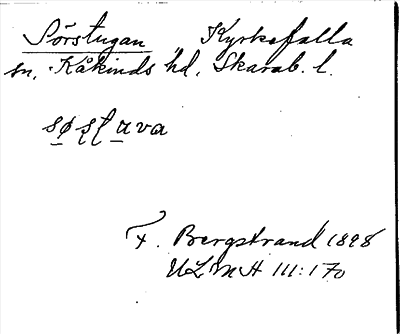 Sörstugan Kyrkefalla
sn, Kåkinds hd, Skarab. l.
F. Bergstrand 1898
ULMA 111:170